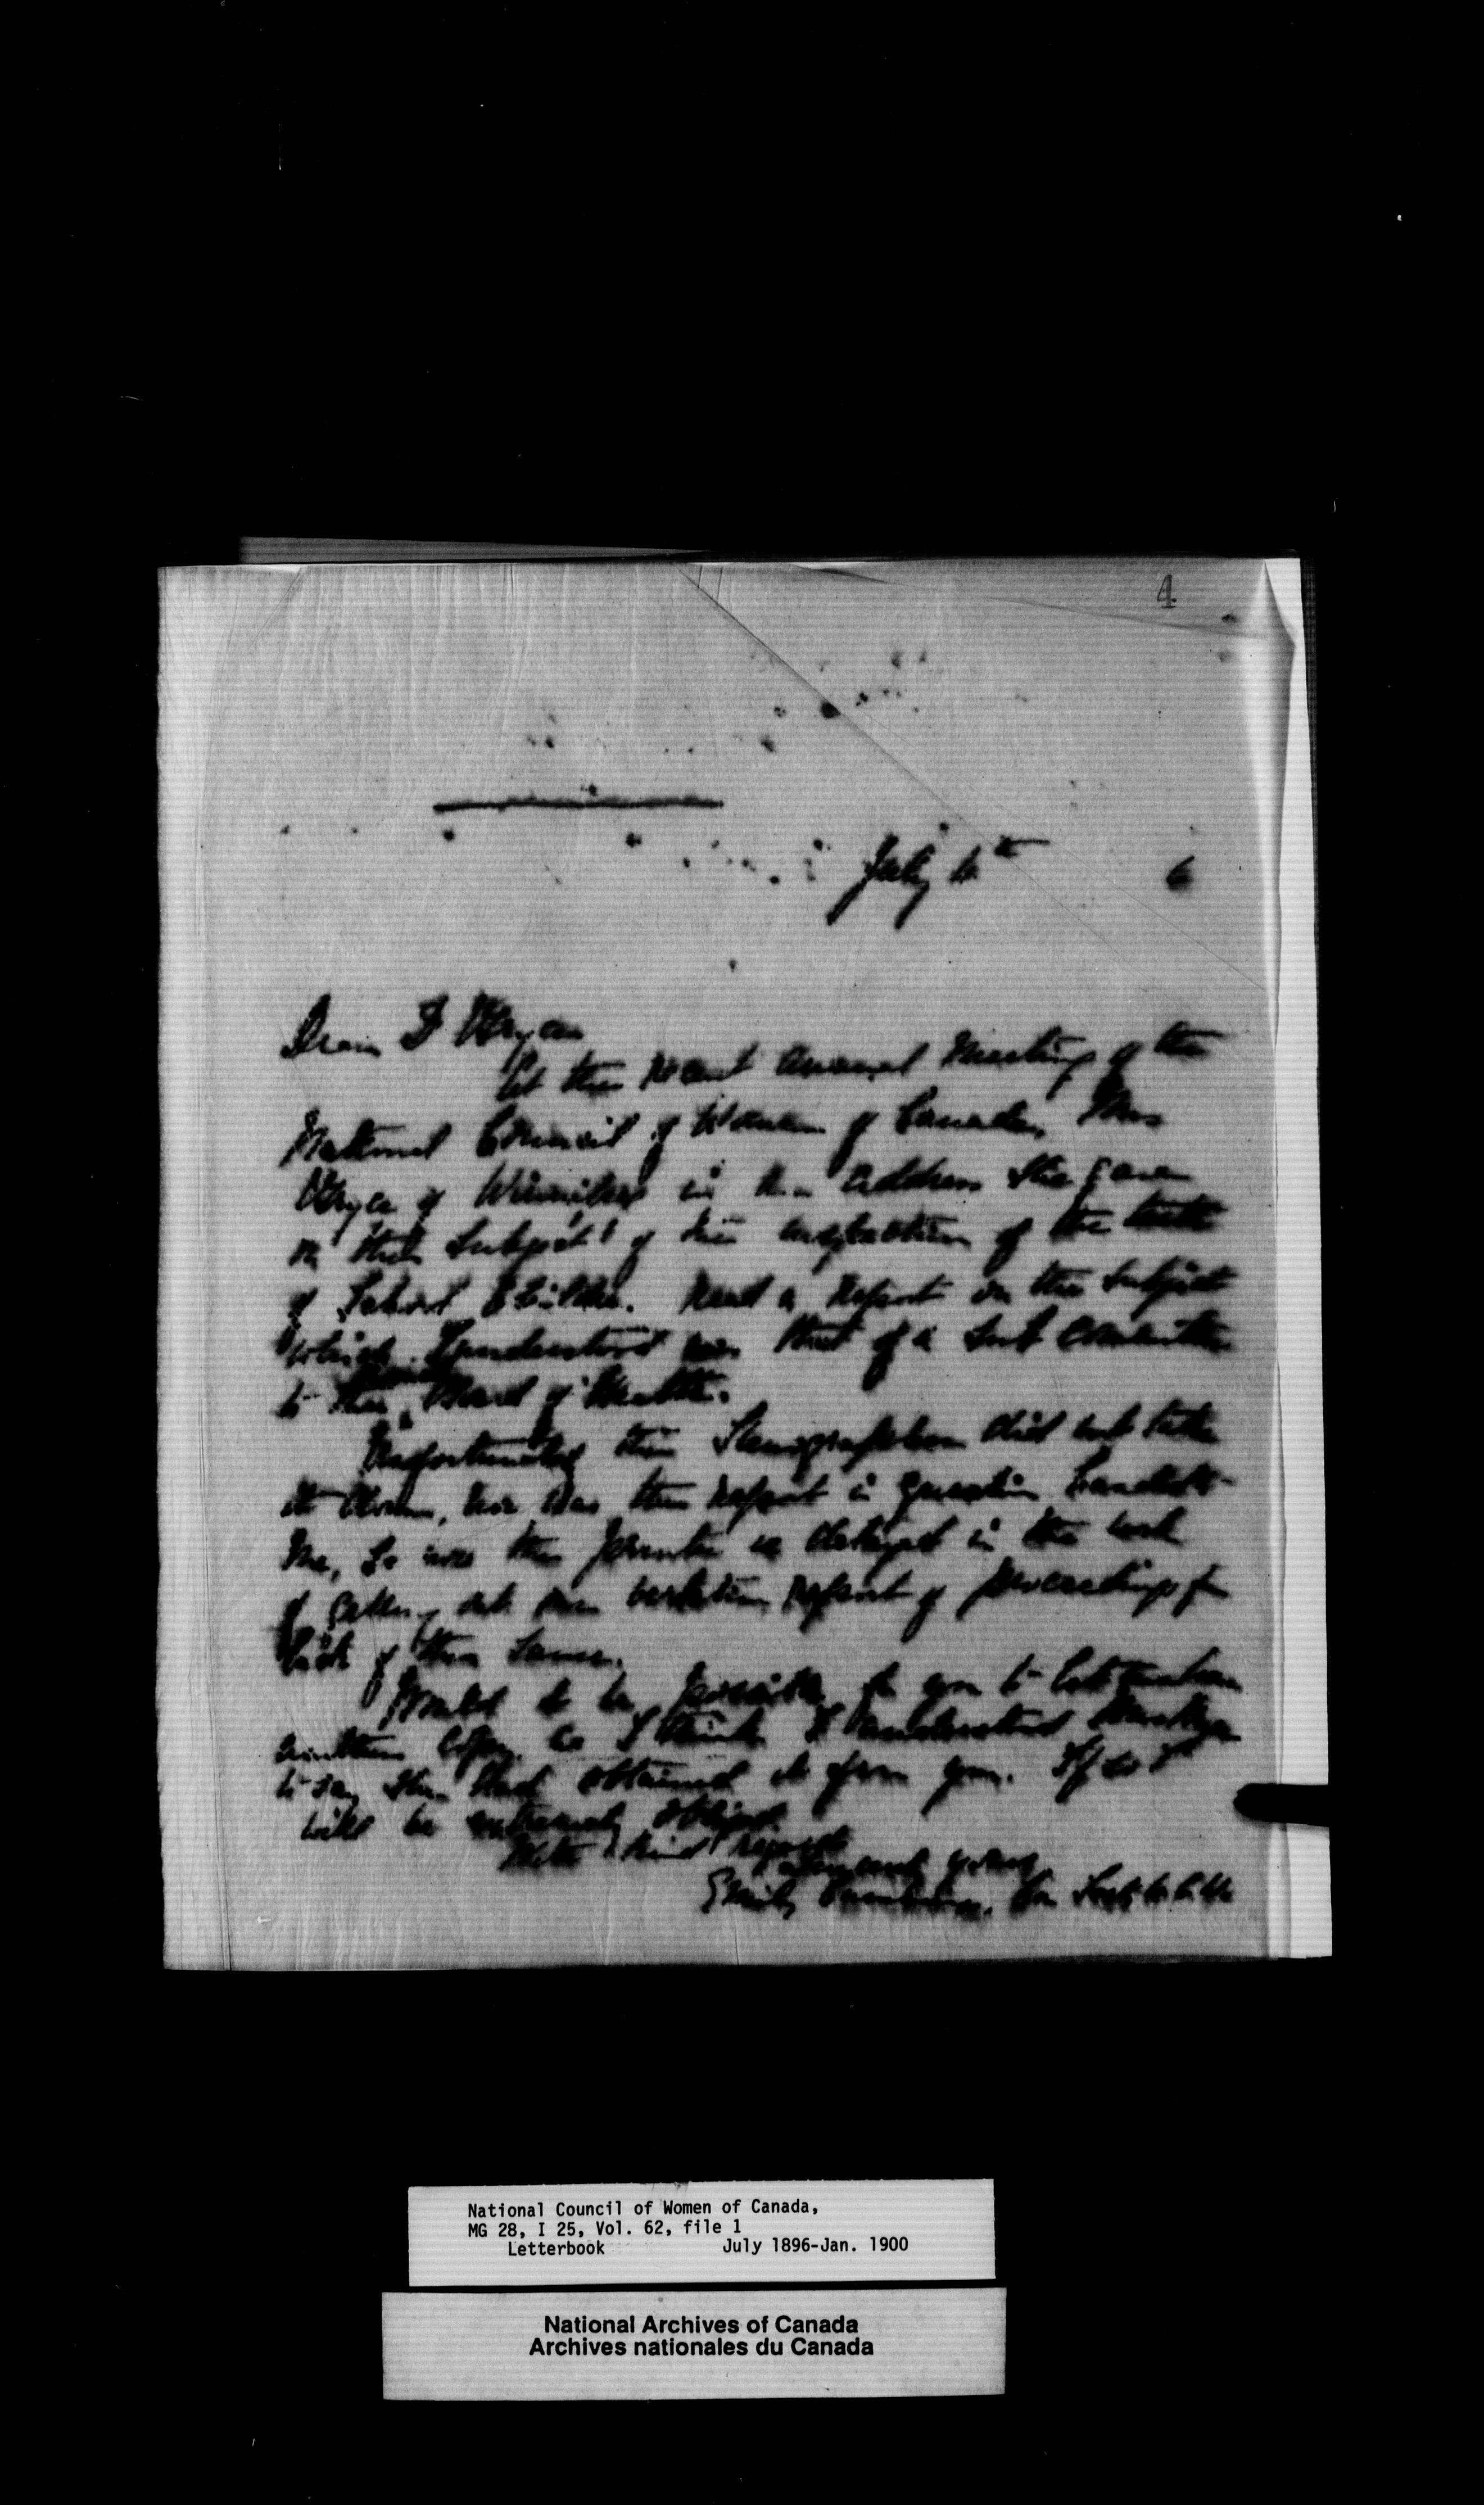 4
July 6th 6
Dear Dr Bryce
At the recent Annual Meeting of the
National Council of Women of Canada, Mrs
Bryce of Winnipeg in an address she gave
on the subject of the inspection of the teeth
of School Children. Read a Report on the subject
which I understood was that of a Sub Committee
to the Board of Health.
Unfortunately the Stenographer did not take
it down, nor was the Report in question handed to
me, so now the printer is delayed in the work
of getting out our verbatim Report of proceedings for
lack of the same.
Would it be possible for you to let me have
another copy as I think I understood Mrs Bryce
to say she had obtained it from you. If so I
will be extremely obliged.
With kind regards
yours
Emily Cummings. Cor Secty
National Council of Women of Canada,
MG 28, I 25, Vol. 62, file 1
Letterbook July 1896-Jan. 1900
National Archives of Canada
Archives nationales du Canada